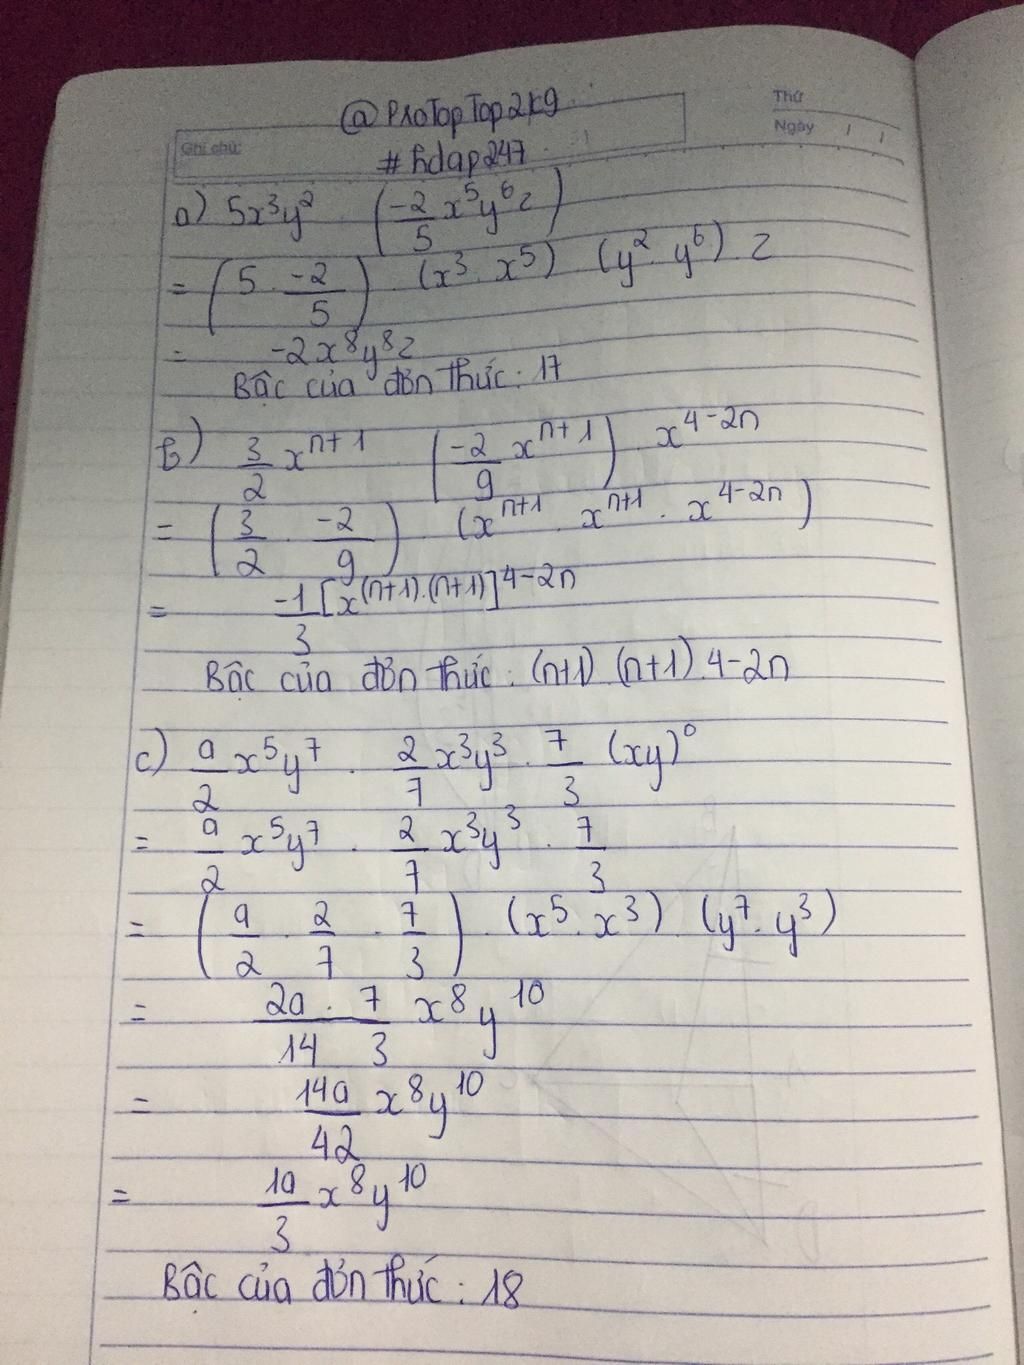 @ProTopTop2k9
Thứ
Ngày
Ghi chú:
#hdap247
a) 5x³y² (-2/5 x⁵y⁶z)
= (5 . -2/5) . (x³ . x⁵) (y² . y⁶) . z
= -2x⁸y⁸z
Bậc của đơn thức : 17
b) 3/2 xⁿ⁺¹ (-2/9 xⁿ⁺¹) . x⁴⁻²ⁿ
= (3/2 . -2/9) . (xⁿ⁺¹ . xⁿ⁺¹ . x⁴⁻²ⁿ)
= -1/3 [x⁽ⁿ⁺¹⁾·⁽ⁿ⁺¹⁾]⁴⁻²ⁿ
Bậc của đơn thức : (n+1) (n+1) . 4-2n
c) a/2 x⁵y⁷ . 2/7 x³y³ . 7/3 (xy)⁰
= a/2 x⁵y⁷ . 2/7 x³y³ . 7/3
= (a/2 . 2/7 . 7/3) . (x⁵ . x³) (y⁷ . y³)
= 2a/14 . 7/3 x⁸y¹⁰
= 14a/42 x⁸y¹⁰
= 1a/3 x⁸y¹⁰
Bậc của đơn thức : 18